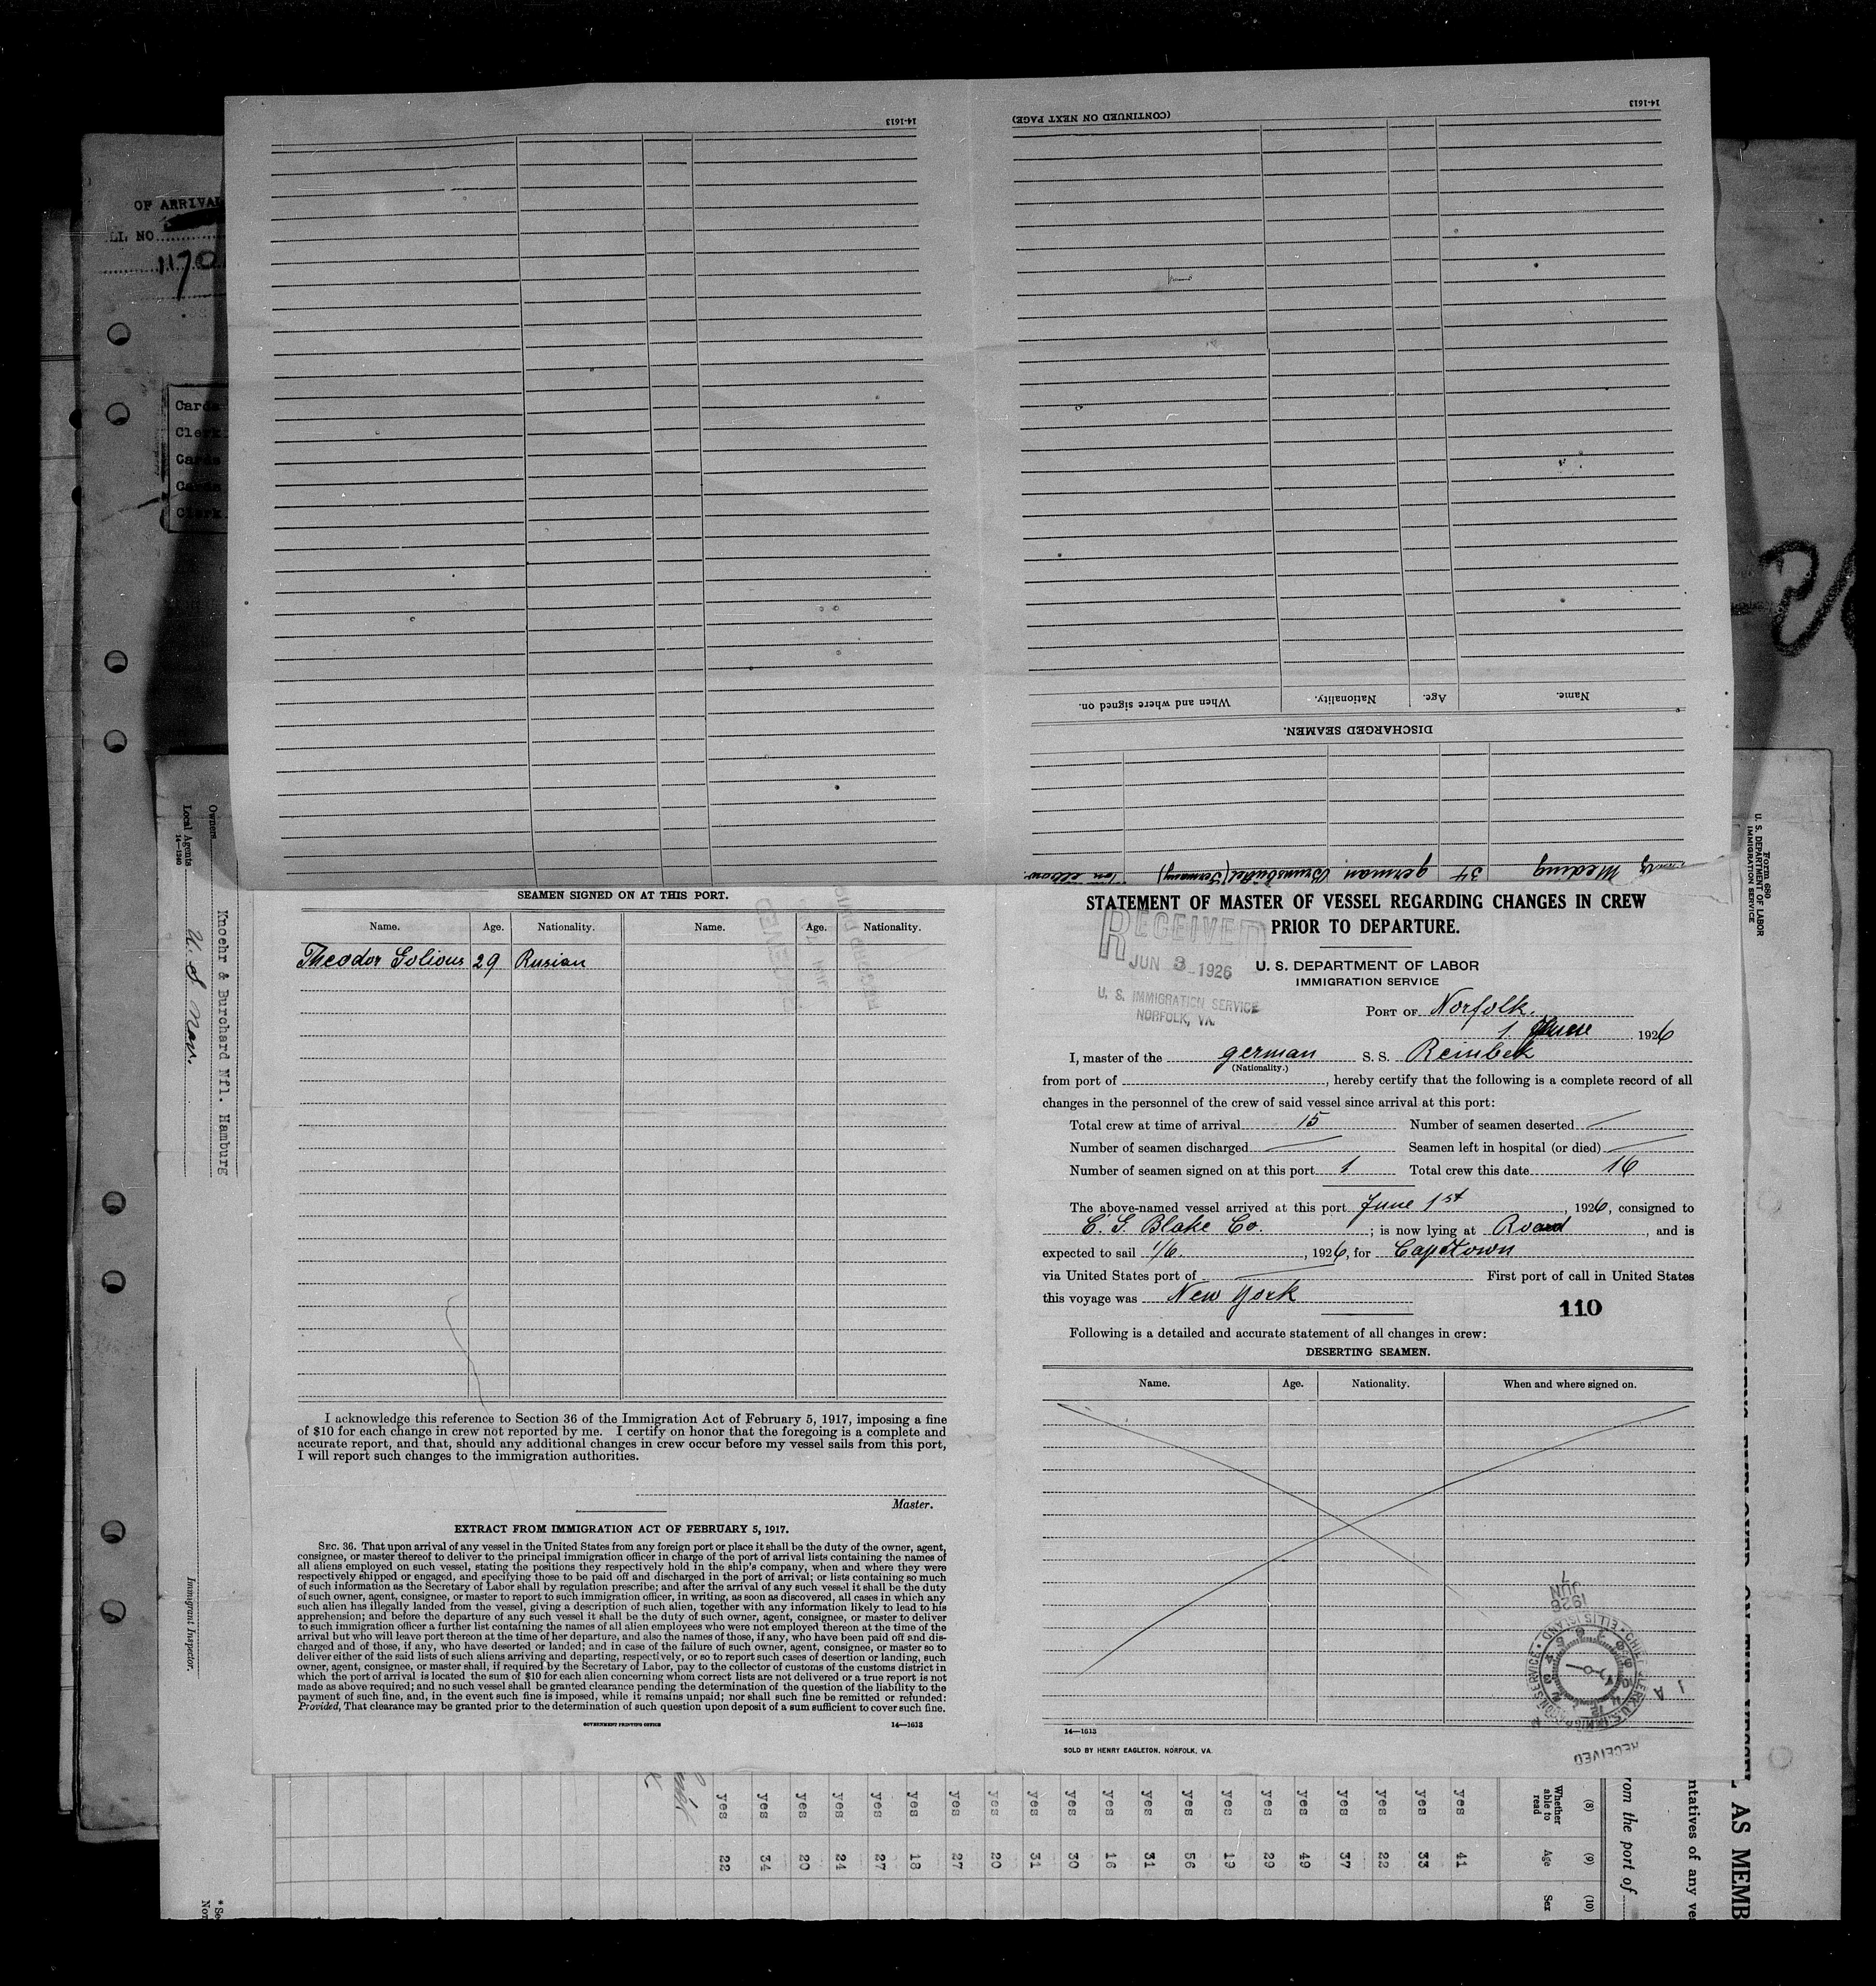 OF ARRIVAL
LI. NO
1170
Cards
Clerk
Cards
Cards
Clerk
14-1613
(CONTINUED ON NEXT PAGE)
14-1613
Name. Age. Nationality. When and where signed on.
DISCHARGED SEAMEN.
Meding 34 german Brunsbüttel (Germany)
Owners
Local Agents
14—1240
Knoehr & Burchard Nfl. Hamburg
U. S. Nav.
Immigrant Inspector.
SEAMEN SIGNED ON AT THIS PORT.
Name. Age. Nationality. Name. Age. Nationality.
Theodor Golious 29 Rusian
I acknowledge this reference to Section 36 of the Immigration Act of February 5, 1917, imposing a fine
of $10 for each change in crew not reported by me. I certify on honor that the foregoing is a complete and
accurate report, and that, should any additional changes in crew occur before my vessel sails from this port,
I will report such changes to the immigration authorities.
Master.
EXTRACT FROM IMMIGRATION ACT OF FEBRUARY 5, 1917.
SEC. 36. That upon arrival of any vessel in the United States from any foreign port or place it shall be the duty of the owner, agent,
consignee, or master thereof to deliver to the principal immigration officer in charge of the port of arrival lists containing the names of
all aliens employed on such vessel, stating the positions they respectively hold in the ship's company, when and where they were
respectively shipped or engaged, and specifying those to be paid off and discharged in the port of arrival; or lists containing so much
of such information as the Secretary of Labor shall by regulation prescribe; and after the arrival of any such vessel it shall be the duty
of such owner, agent, consignee, or master to report to such immigration officer, in writing, as soon as discovered, all cases in which any
such alien has illegally landed from the vessel, giving a description of such alien, together with any information likely to lead to his
apprehension; and before the departure of any such vessel it shall be the duty of such owner, agent, consignee, or master to deliver
to such immigration officer a further list containing the names of all alien employees who were not employed thereon at the time of the
arrival but who will leave port thereon at the time of her departure, and also the names of those, if any, who have been paid off and dis-
charged and of those, if any, who have deserted or landed; and in case of the failure of such owner, agent, consignee, or master so to
deliver either of the said lists of such aliens arriving and departing, respectively, or so to report such cases of desertion or landing, such
owner, agent, consignee, or master shall, if required by the Secretary of Labor, pay to the collector of customs of the customs district in
which the port of arrival is located the sum of $10 for each alien concerning whom correct lists are not delivered or a true report is not
made as above required; and no such vessel shall be granted clearance pending the determination of the question of the liability to the
payment of such fine, and, in the event such fine is imposed, while it remains unpaid; nor shall such fine be remitted or refunded:
Provided, That clearance may be granted prior to the determination of such question upon deposit of a sum sufficient to cover such fine.
GOVERNMENT PRINTING OFFICE 14—1613
STATEMENT OF MASTER OF VESSEL REGARDING CHANGES IN CREW
PRIOR TO DEPARTURE.
RECEIVED
JUN 3 1926
U. S. IMMIGRATION SERVICE
NORFOLK, VA.
U. S. DEPARTMENT OF LABOR
IMMIGRATION SERVICE
PORT OF Norfolk.
1 June 1926
I, master of the german S. S. Reinbek
(Nationality.)
from port of , hereby certify that the following is a complete record of all
changes in the personnel of the crew of said vessel since arrival at this port:
Total crew at time of arrival 15 Number of seamen deserted
Number of seamen discharged Seamen left in hospital (or died)
Number of seamen signed on at this port 1 Total crew this date 16
The above-named vessel arrived at this port June 1st, 1926, consigned to
C. G. Blake Co. ; is now lying at Road, and is
expected to sail 1/6., 1926, for Capetown
via United States port of First port of call in United States
this voyage was New York
110
Following is a detailed and accurate statement of all changes in crew:
DESERTING SEAMEN.
Name. Age. Nationality. When and where signed on.
1926
JUN
7
RECEIVED
14—1613
SOLD BY HENRY EAGLETON, NORFOLK, VA.
Form 680
U. S. DEPARTMENT OF LABOR
IMMIGRATION SERVICE
(8) Whether able to read
yes yes yes yes yes yes yes yes yes yes yes yes yes yes yes yes yes yes yes yes
(9) Age
41 33 22 37 49 29 19 56 31 16 30 31 20 27 18 27 24 20 34 22
(10) Sex
rom the port of
ntatives of any ve
AS MEMB